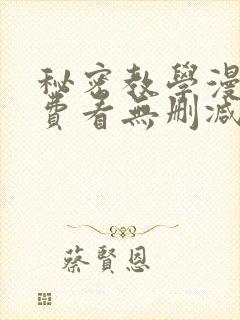 秘密教學漫
費看無刪減
蔡賢恩